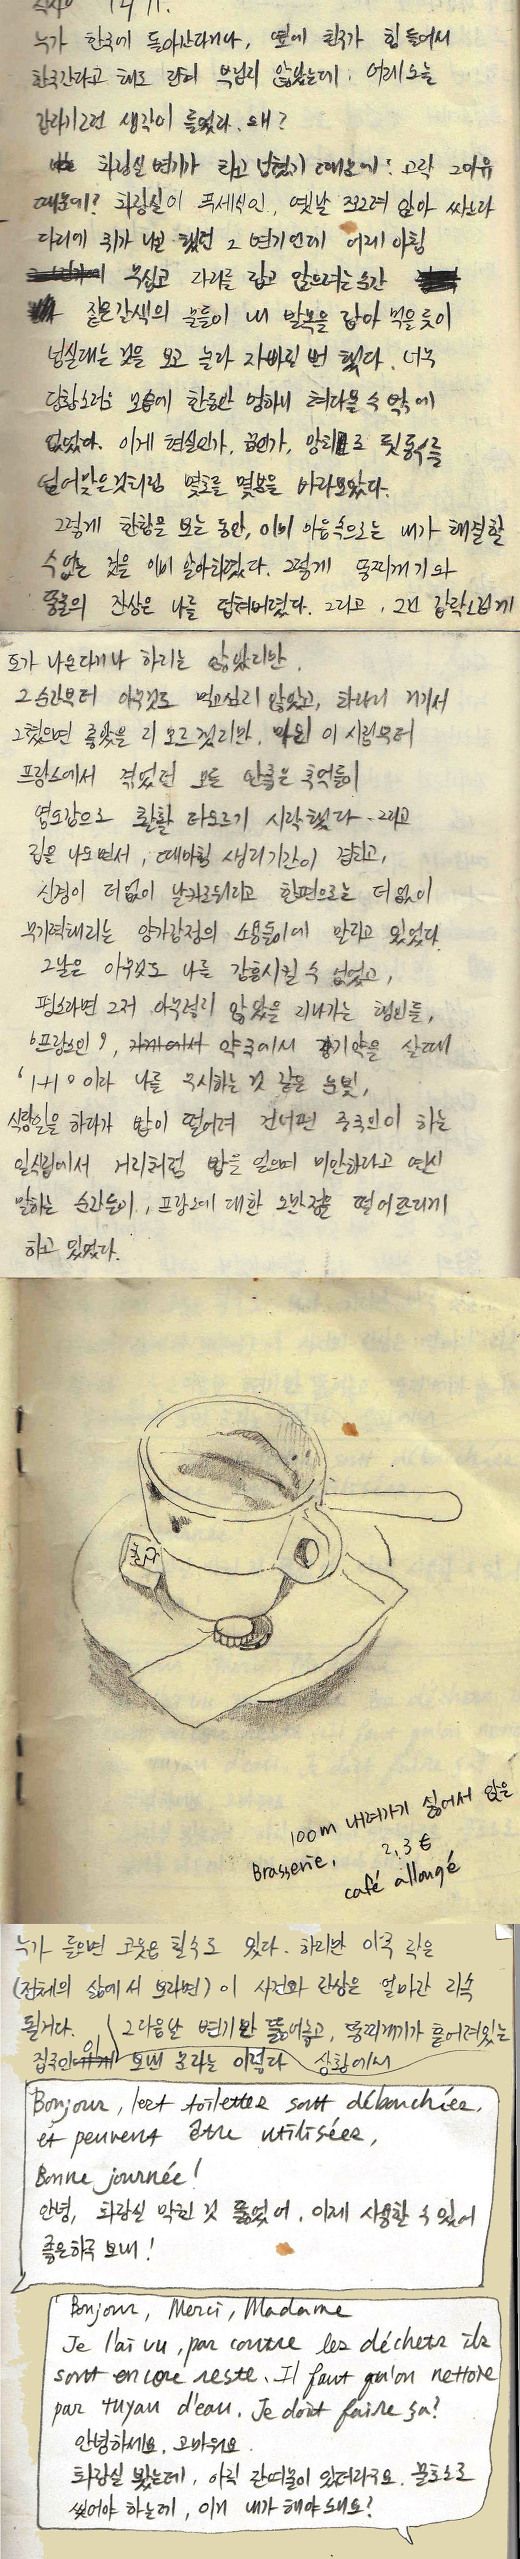 누가 한국에 돌아간다거나, 옆에 친구가 힘들어서
한국간다고 해도 전혀 부럽지 않았는데, 어제 오늘
갑자기 그런 생각이 들었다. 왜?
화장실 변기가 타고 넘쳤기 때문에! 고작 그 이유
때문에? 화장실이 푸세식인, 옛날 쪼그려 앉아 싸느라
다리에 쥐가 나곤 했던 그 변기인데 어제 아침
무심코 다리를 접고 앉으려는 순간
짙은 갈색의 물들이 내 발목을 잡아 먹을듯이
넘실대는 것을 보고 놀라 자빠질 뻔 했다. 너무
당황스러운 모습에 한동안 멍하니 쳐다볼 수 밖에
없었다. 이게 현실인가, 꿈인가, 망치로 뒷통수를
얻어맞은것처럼 몇초를 몇분을 바라보았다.
그렇게 한참을 보는 동안, 이미 마음속으로는 내가 해결할
수 없는 것을 이미 알아차렸다. 그렇게 똥찌꺼기와
똥물의 잔상은 나를 덮쳐버렸다. 그리고, 그건 갑작스럽게
토가 나온다거나 하지는 않았지만,
그 순간부터 아무것도 먹고싶지 않았고, 차라리 거기서
그쳤으면 좋았을 지 모르겠지만, 이 시점부터
프랑스에서 겪었던 모든 안좋은 추억들이
영도감으로 활활 타오르기 시작했다. 그리고
집을 나오면서, 때마침 생리기간이 겹치고,
신경이 더없이 날카로워지고 한편으로는 더없이
무기력해지는 양가감정의 소용돌이에 말리고 있었다.
그날은 아무것도 나를 감흥시킬 수 없었고,
평소라면 그저 아무렇지 않았을 지나가는 행인들,
'프랑스인', 약국에서 감기약을 살때
'1+1'이라 나를 무시하는 것 같은 눈빛,
식당일을 하다가 밥이 떨어져 건너편 중국인이 하는
일식집에서 거지처럼 밥을 얻으며 미안하다고 연신
말하는 순간들이, 프랑스에 대한 오만정을 떨어뜨리게
하고 있었다.
100m 내려가기 싫어서 앉은
Brasserie,
2,3 €
café allongé
누가 들으면 코웃음 칠수도 있다. 하지만 이주 작은
(전체의 삶에서 보자면) 이 사건와 잔상은 얼마간 지속
될거다.
그다음날 변기만 뚫어놓고, 똥찌꺼기가 흩어져있는
집주인이 보내 문자는 이렇다 상황에서
Bonjour, lest toilettes sont débouchées,
et peuvent être utilisées,
Bonne journée!
안녕, 화장실 막힌 것 뚫었어, 이제 사용할 수 있어
좋은하루 보내!
Bonjour, Merci, Madame
Je l'ai vu, par contre les déchets ils
sont encore reste. Il faut qu'on nettoie
par tuyau d'eau. Je doit faire ça?
안녕하세요, 고마워요
화장실 봤는데, 아직 잔여물이 있더라구요. 물호스로
씻어야 하는데, 이거 내가 해야 돼요?